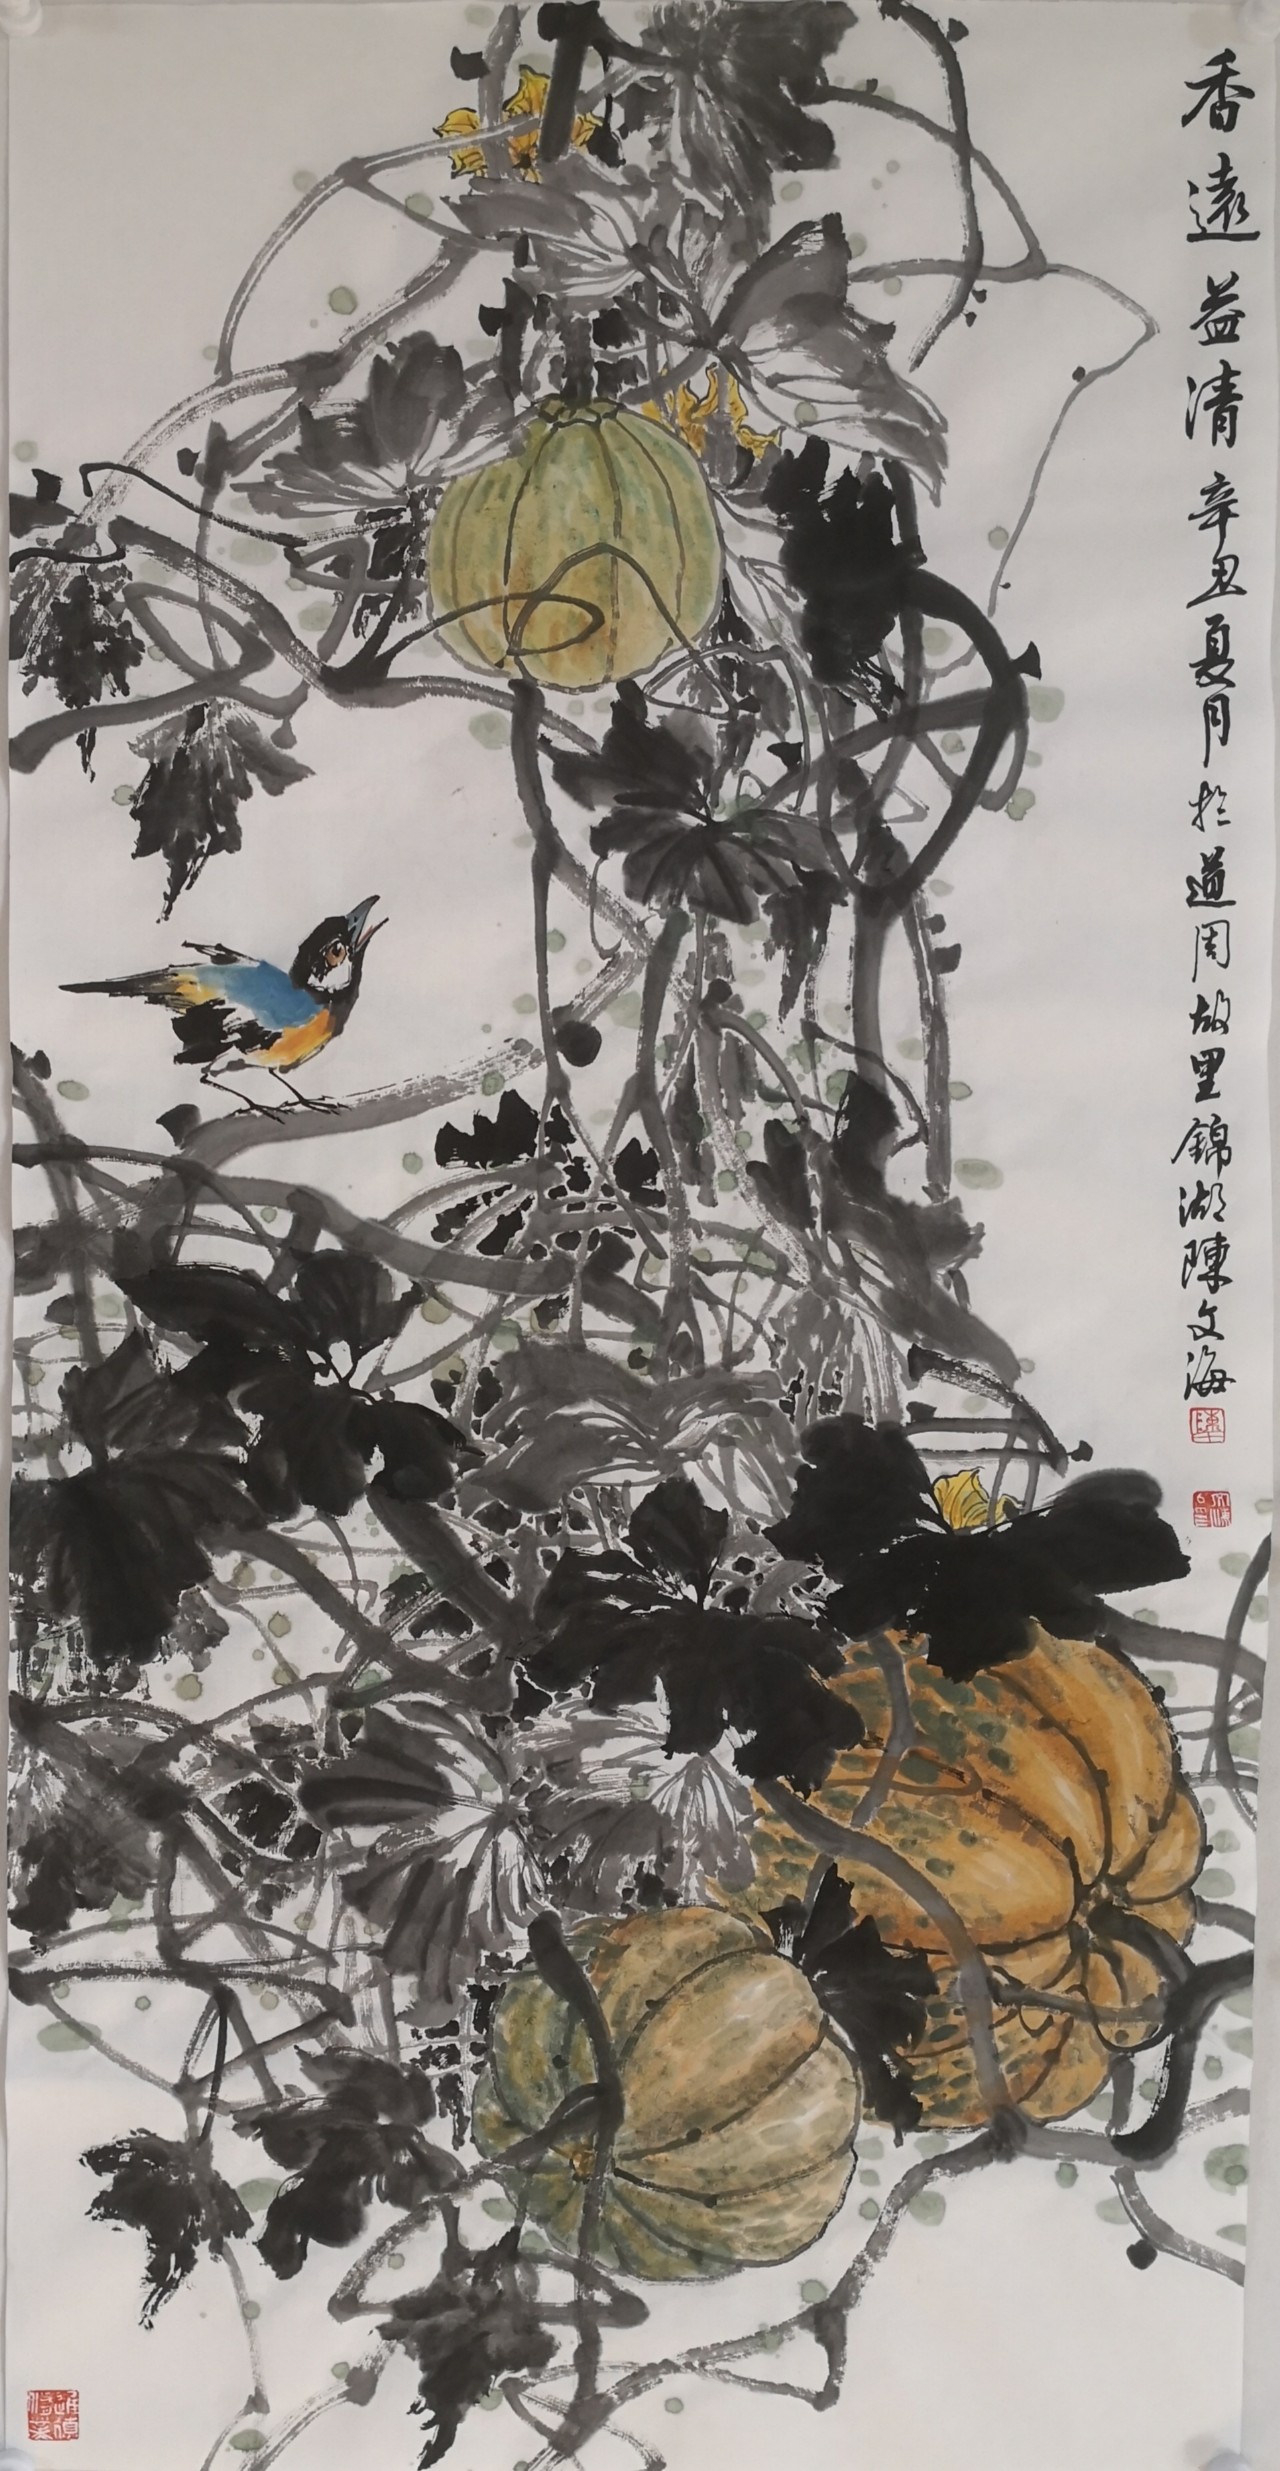 香遠益清 辛丑夏月於道周故里錦湖陳文海
陳